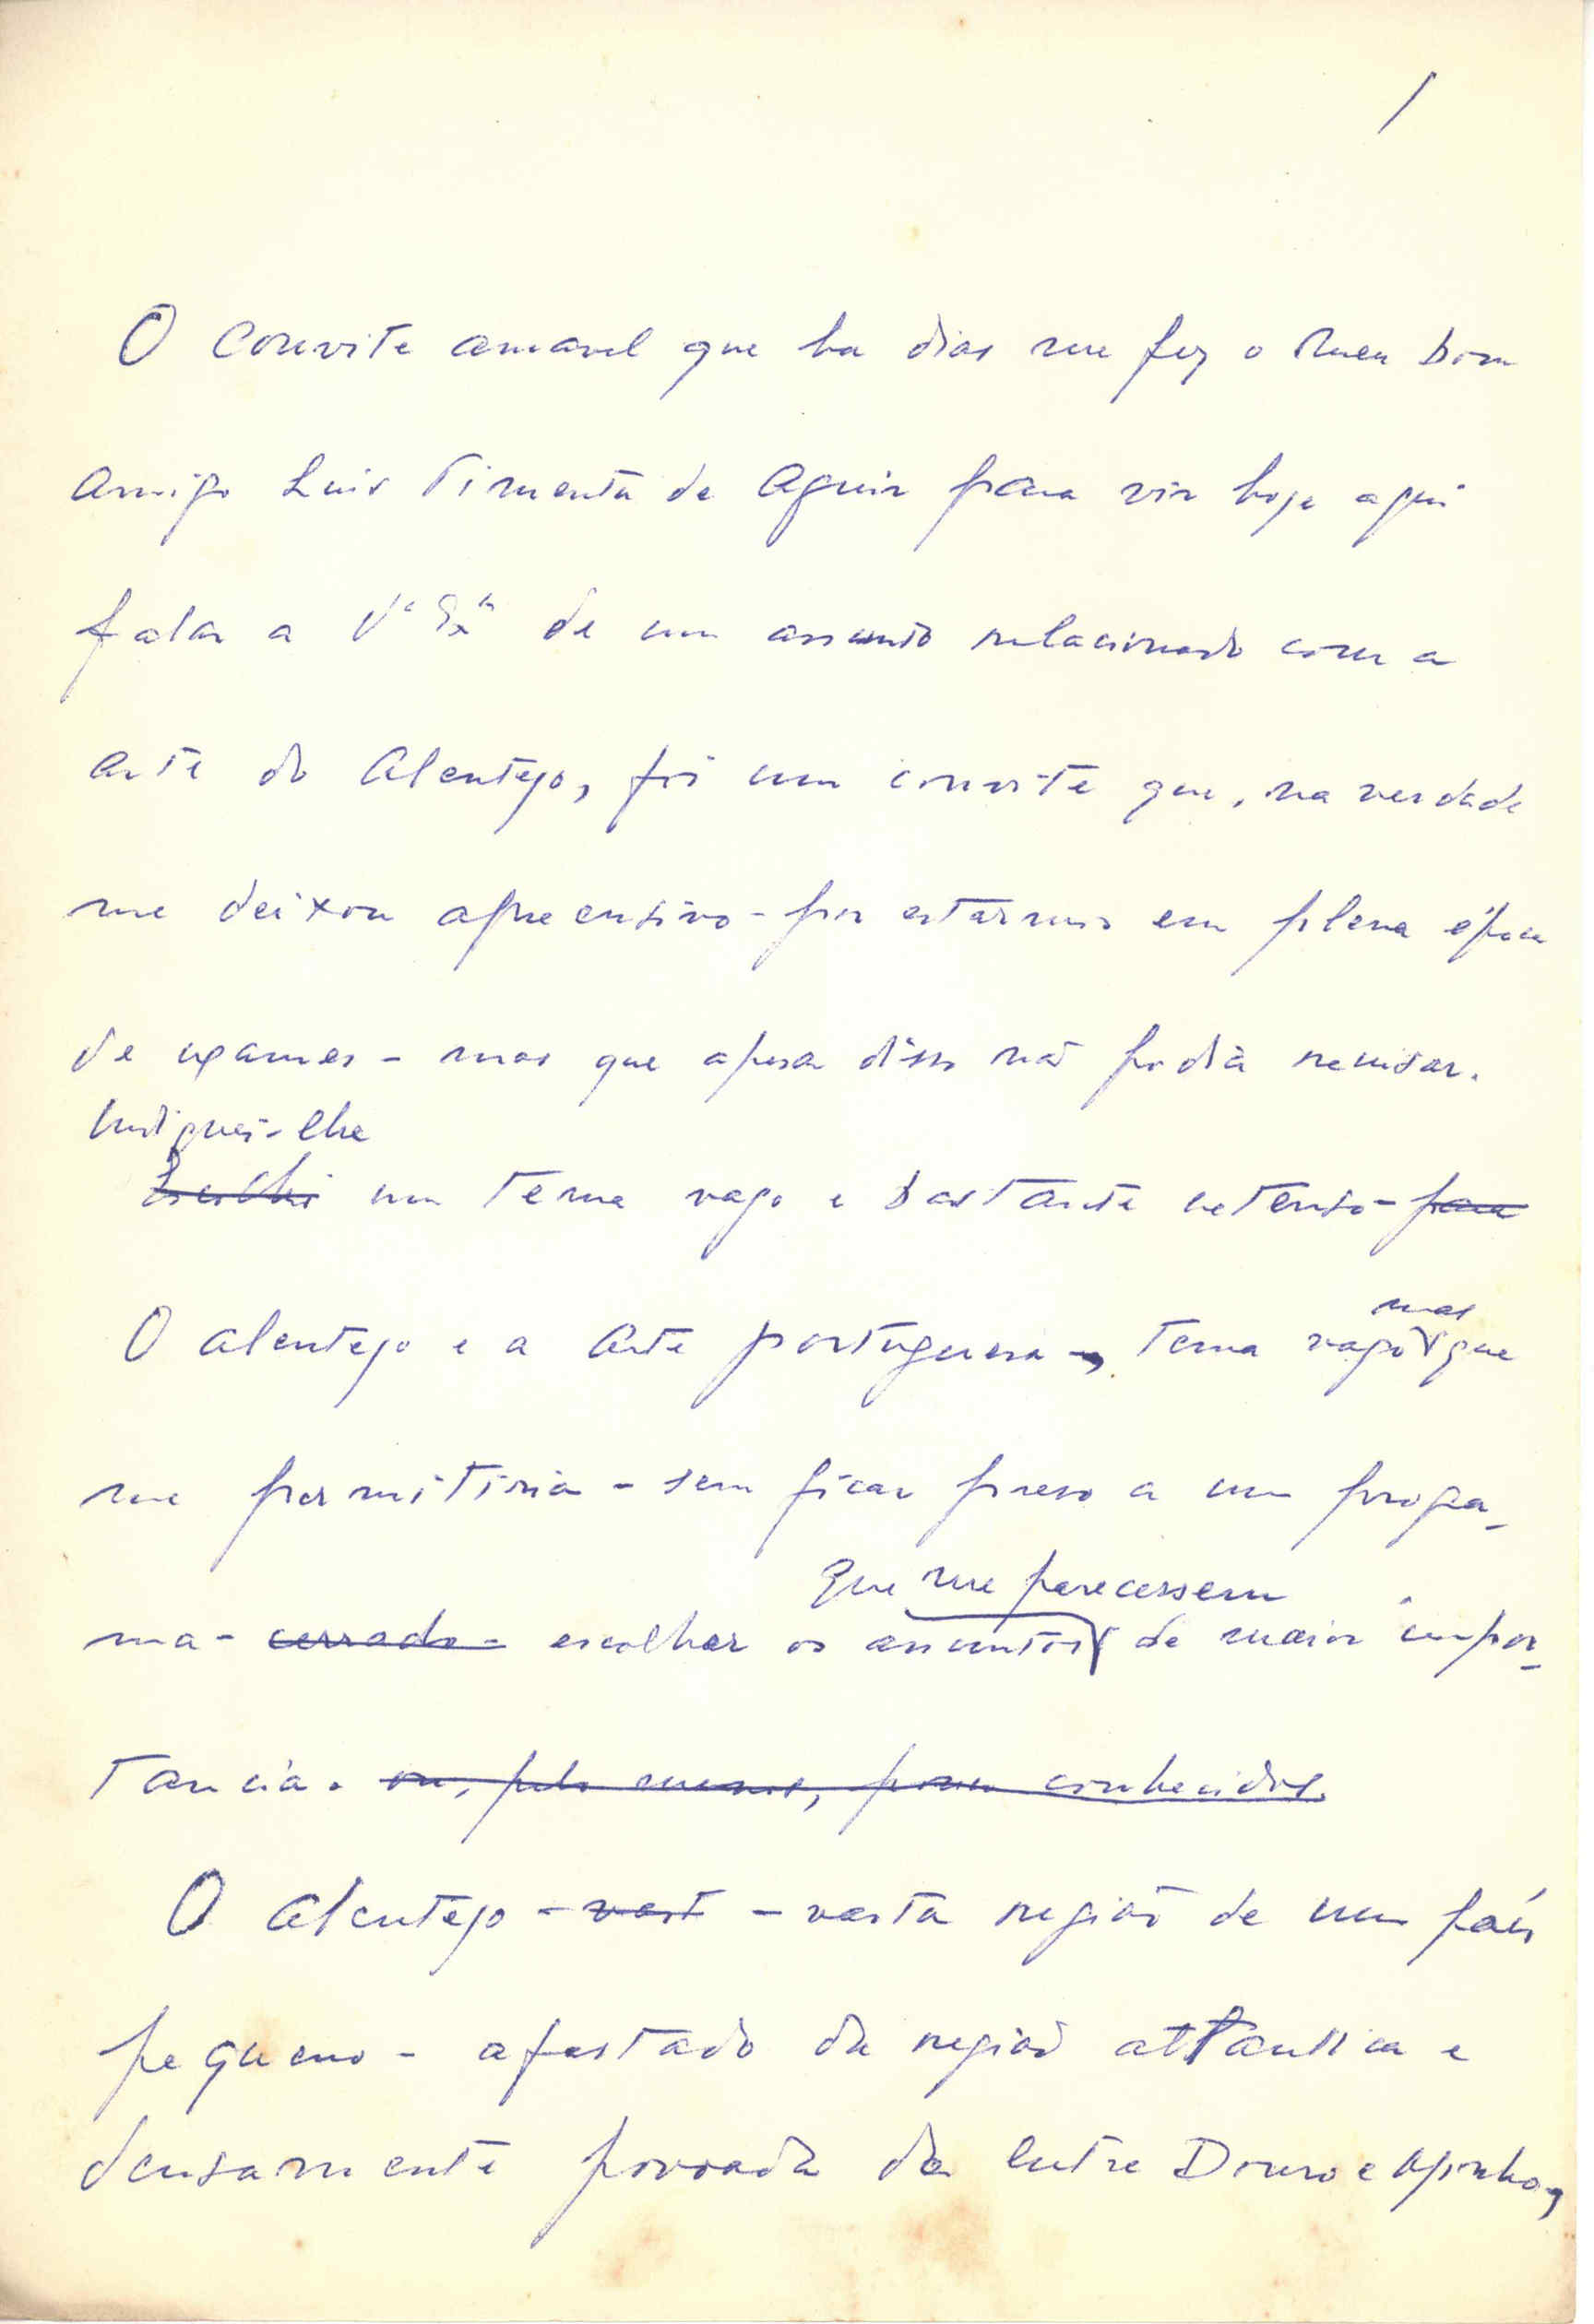 1
O Convite amavel que ha dias me fez o meu bom
amigo Luis Pimenta de Aguiar para vir hoje aqui
falar a Vªs Exªs de um assunto relacionado com a
arte do Alentejo, foi um convite que, na verdade
me deixou apreensivo - por estarmos em plena época
de exames - mas que apesar disso não podia recusar.
Indiquei-lhe
Escolhi um tema vago e bastante extenso - para
mas
O Alentejo e a Arte portuguesa -, tema vago que
me permitiria - sem ficar preso a um progra-
que me parecessem
ma - cerrado - escolher os assuntos de maior impor-
tancia. ou, pelo menos, pouco conhecidos.
O Alentejo - vast - vasta região de um país
pequeno - afastado da região atlantica e
densamente povoada de Entre Douro e Minho,